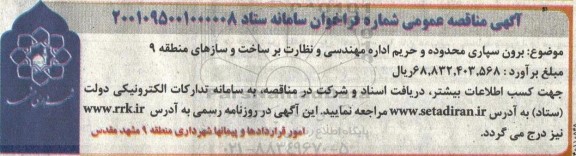 آگهی مناقصه عمومی شماره فراخوان سامانه ستاد ۲۰۰۱۰۹۵۰۰۱۰۰۰۰۰۸
موضوع: برون سپاری محدوده و حریم اداره مهندسی و نظارت بر ساخت و سازهای منطقه ۹
مبلغ برآورد: ۶۸,۸۳۲,۴۰۳,۵۶۸ریال
جهت کسب اطلاعات بیشتر، دریافت اسناد و شرکت در مناقصه، به سامانه تدارکات الکترونیکی دولت
(ستاد) به آدرس www.setadiran.ir مراجعه نمایید. این آگهی در روزنامه رسمی به آدرس www.rrk.ir
نیز درج می گردد.
امور قراردادها و پیمانها شهرداری منطقه ۹ مشهد مقدس